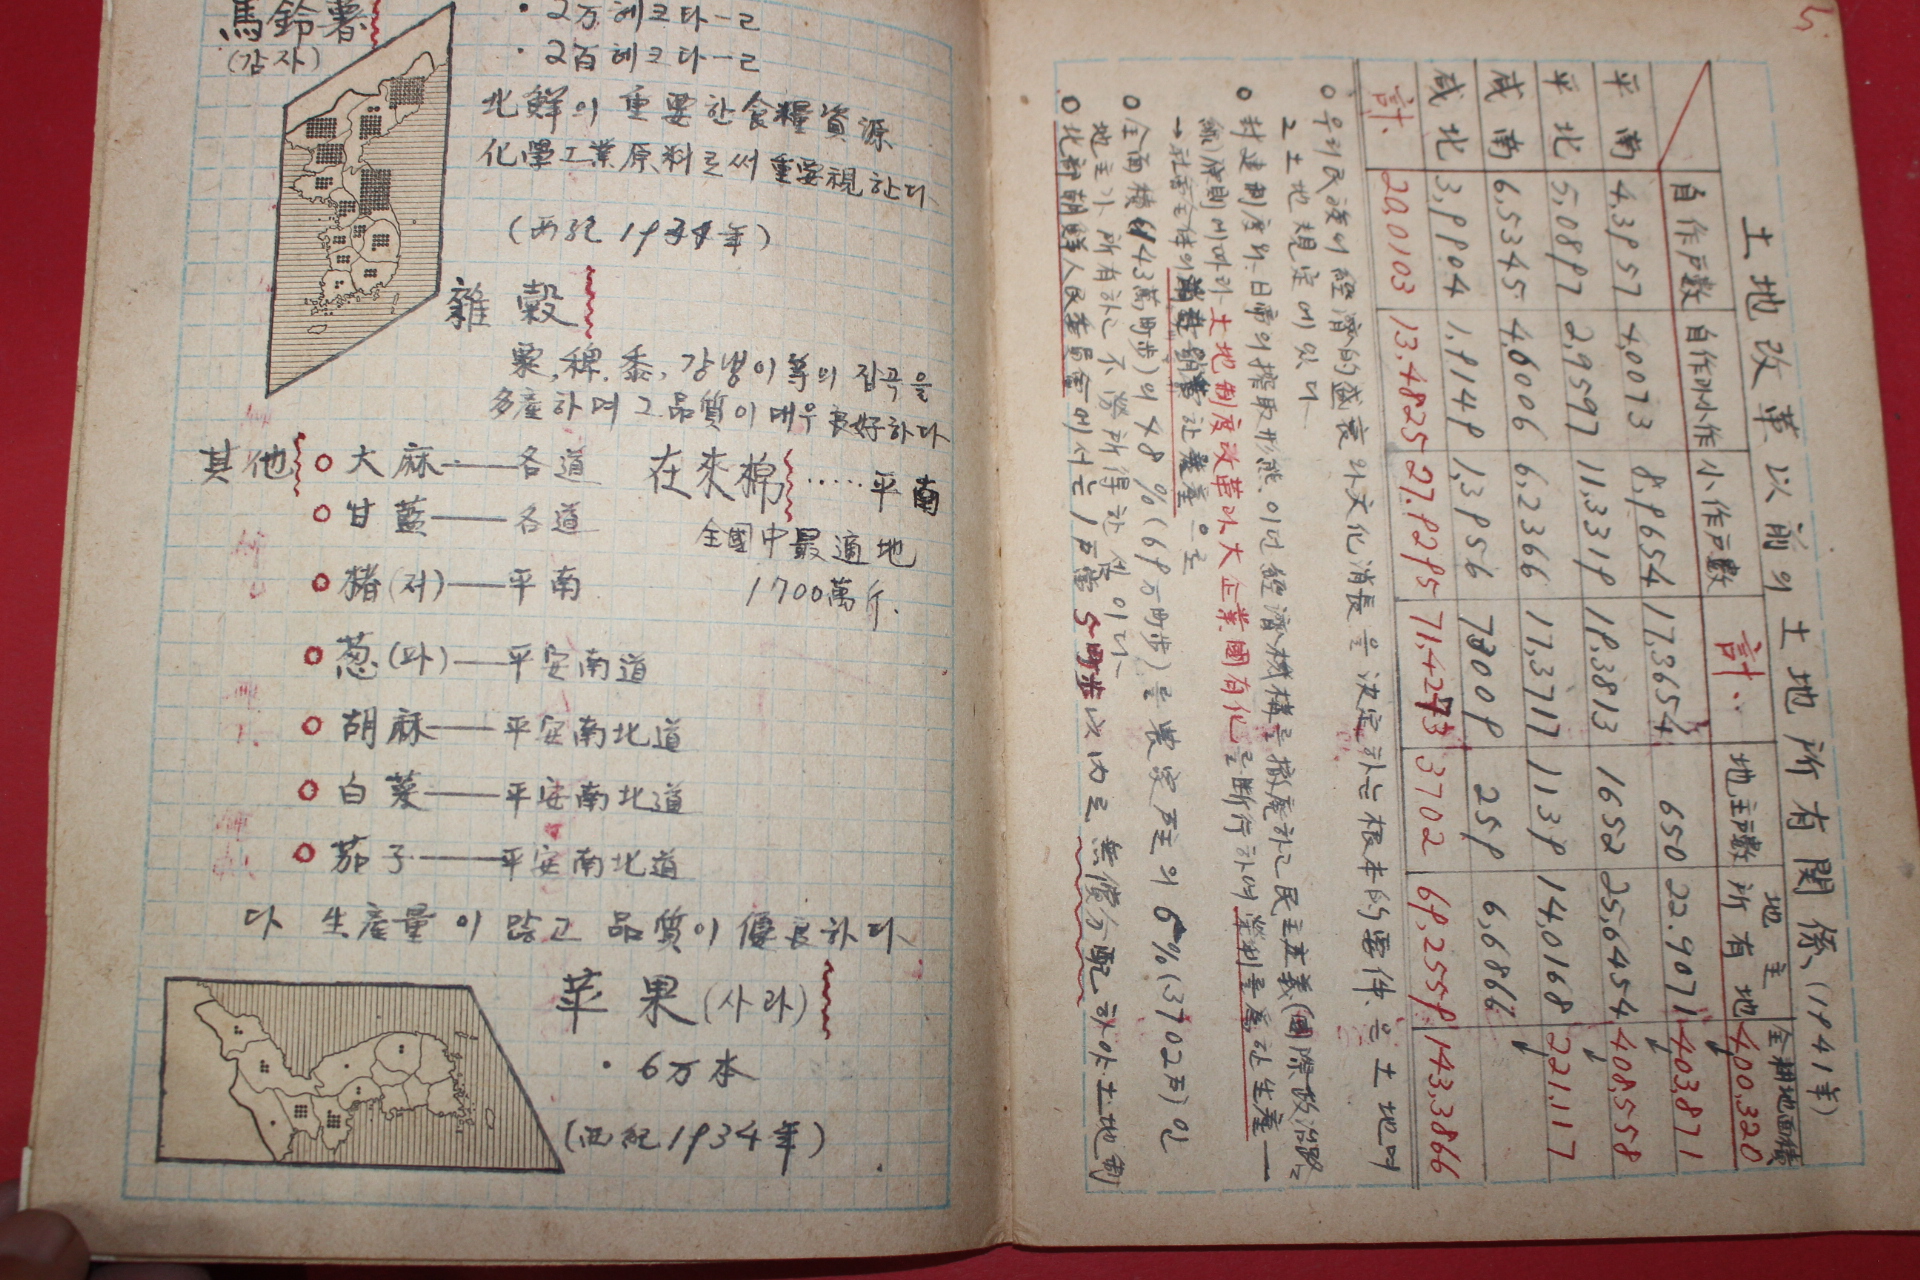 馬鈴薯
(감자)
· 2万헤크타ー르
· 2百헤크타ー르
北鮮의 重要한 食糧資源
化學工業原料로써 重要視한다
(西紀 1934年)
雜穀
粟, 稗, 黍, 강냉이 等의 잡곡을
多產하며 그 品質이 매우 良好하다
其他 ○ 大麻——各道
在來棉 ····· 平南
○ 甘藍——各道
全國中最適地
○ 猪(저)——平南
1700萬斤.
○ 葱(파)——平安南道
○ 胡麻——平安南北道
○ 白菜——平安南北道
○ 茄子——平安南北道
다 生産量이 많고 品質이 優良하다
苹果(사과)
· 6万本
(西紀 1934年)
5.
土地改革以前의 土地所有関係 (1941年)
自作戸數 自作兼小作 小作戸數 計 地主戸數 地主所有地 全耕地面積
400,320
平南 4,3957 4,0073 8,9654 17,3654 650 22.9071 403,871
平北 5,0897 2,9597 11,3319 18,3813 1652 25,6454 408,558
咸南 6,5345 4,6006 6,2366 17,3717 1139 14,0168 221,117
咸北 3,9904 1,9149 1,3956 259 6,6866
計 20,0103 13,4825 27,9295 3702 69,2559 143,3866
○ 우리民族의 經濟的盛衰와 文化消長을 決定하는 根本的要件은 土地며
그 土地規定에 있다
○ 封建制度와 日帝의 搾取形態, 이런 經濟機構를 撤廃하고 民主主義
原則에 따라 土地制度改革과 大企業國有化를 断行하여
生產—
→社会全体의
으로
○ 全面積 의 48%(69万町步)를 農家戸主의 6%(3702戸)인
地主가 所有하고 不勞所得한 것이다
○ 北部朝鮮人民委員会에서는 1戸當 5町步 以内로 無償分配하야 土地制